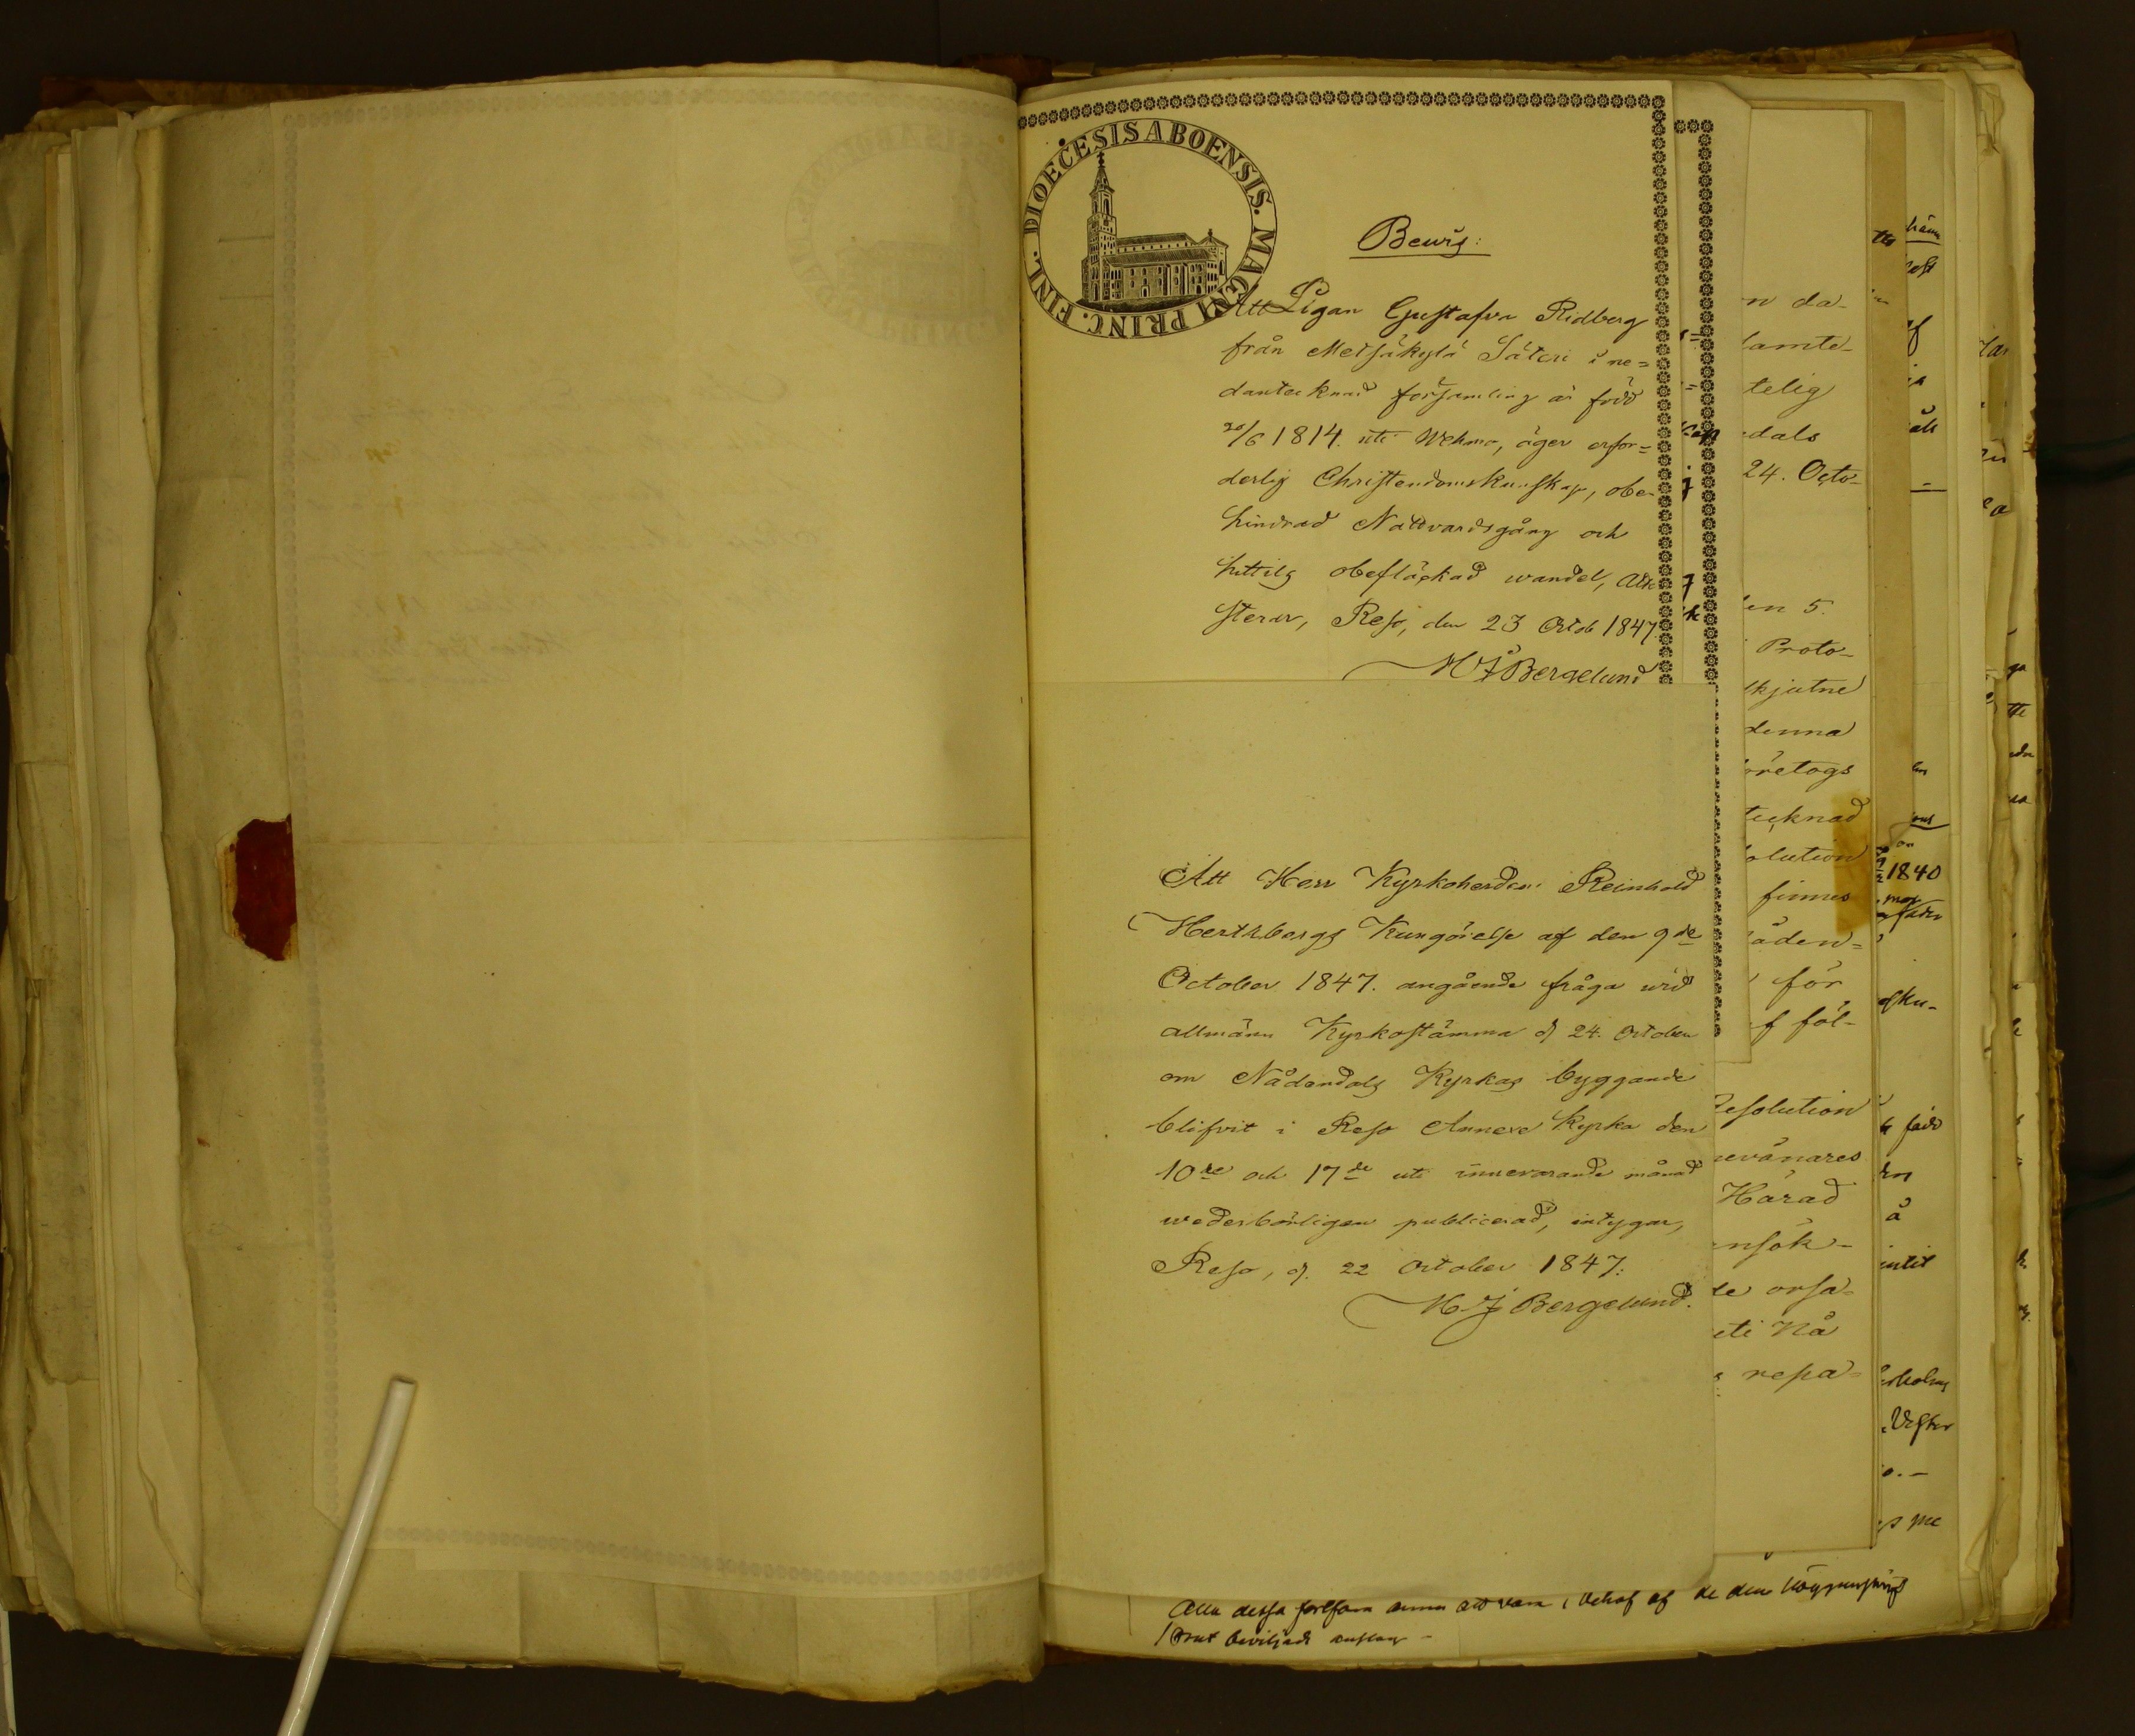 DIOECESIS ABOENSIS. MAGNI PRINC. FINL.
Bewis:
Att Pigan Gustafva Ridberg
från Metsäkylä Säteri i ne=
dantecknad församling är född
20/6 1814. uti Wehmo, äger erfor=
derlig Christendomskunskap, obe-
hindrad Nattvardsgång och
hittils obefläckad wandel, atte
sterar, Reso, den 23 Octob 1847.
M J Bergelund
Att Herr Kyrkoherden Reinhold
Herthbergs Kungörelse af den 9de
October 1847. angående fråga wid
allmänn Kyrkostämma d 24. October
om Nådendals Kyrkas byggande
blifvit i Reso Annexe Kyrka den
10de och 17de uti innevarande månad
wederbörligen publicerad, intygar,
Reso, d. 22 October 1847.
M J Bergelund.
n da-
lamte-
telig
dals
24. Octo-
en 5.
Proto-
skjutne
denna
öretogs
tecknad
olution
finnes
åden=
för
f föl-
Resolution
nevånares
Härad
ansök-
de orsa-
uti Nå
repa-
1840
Alla dessa